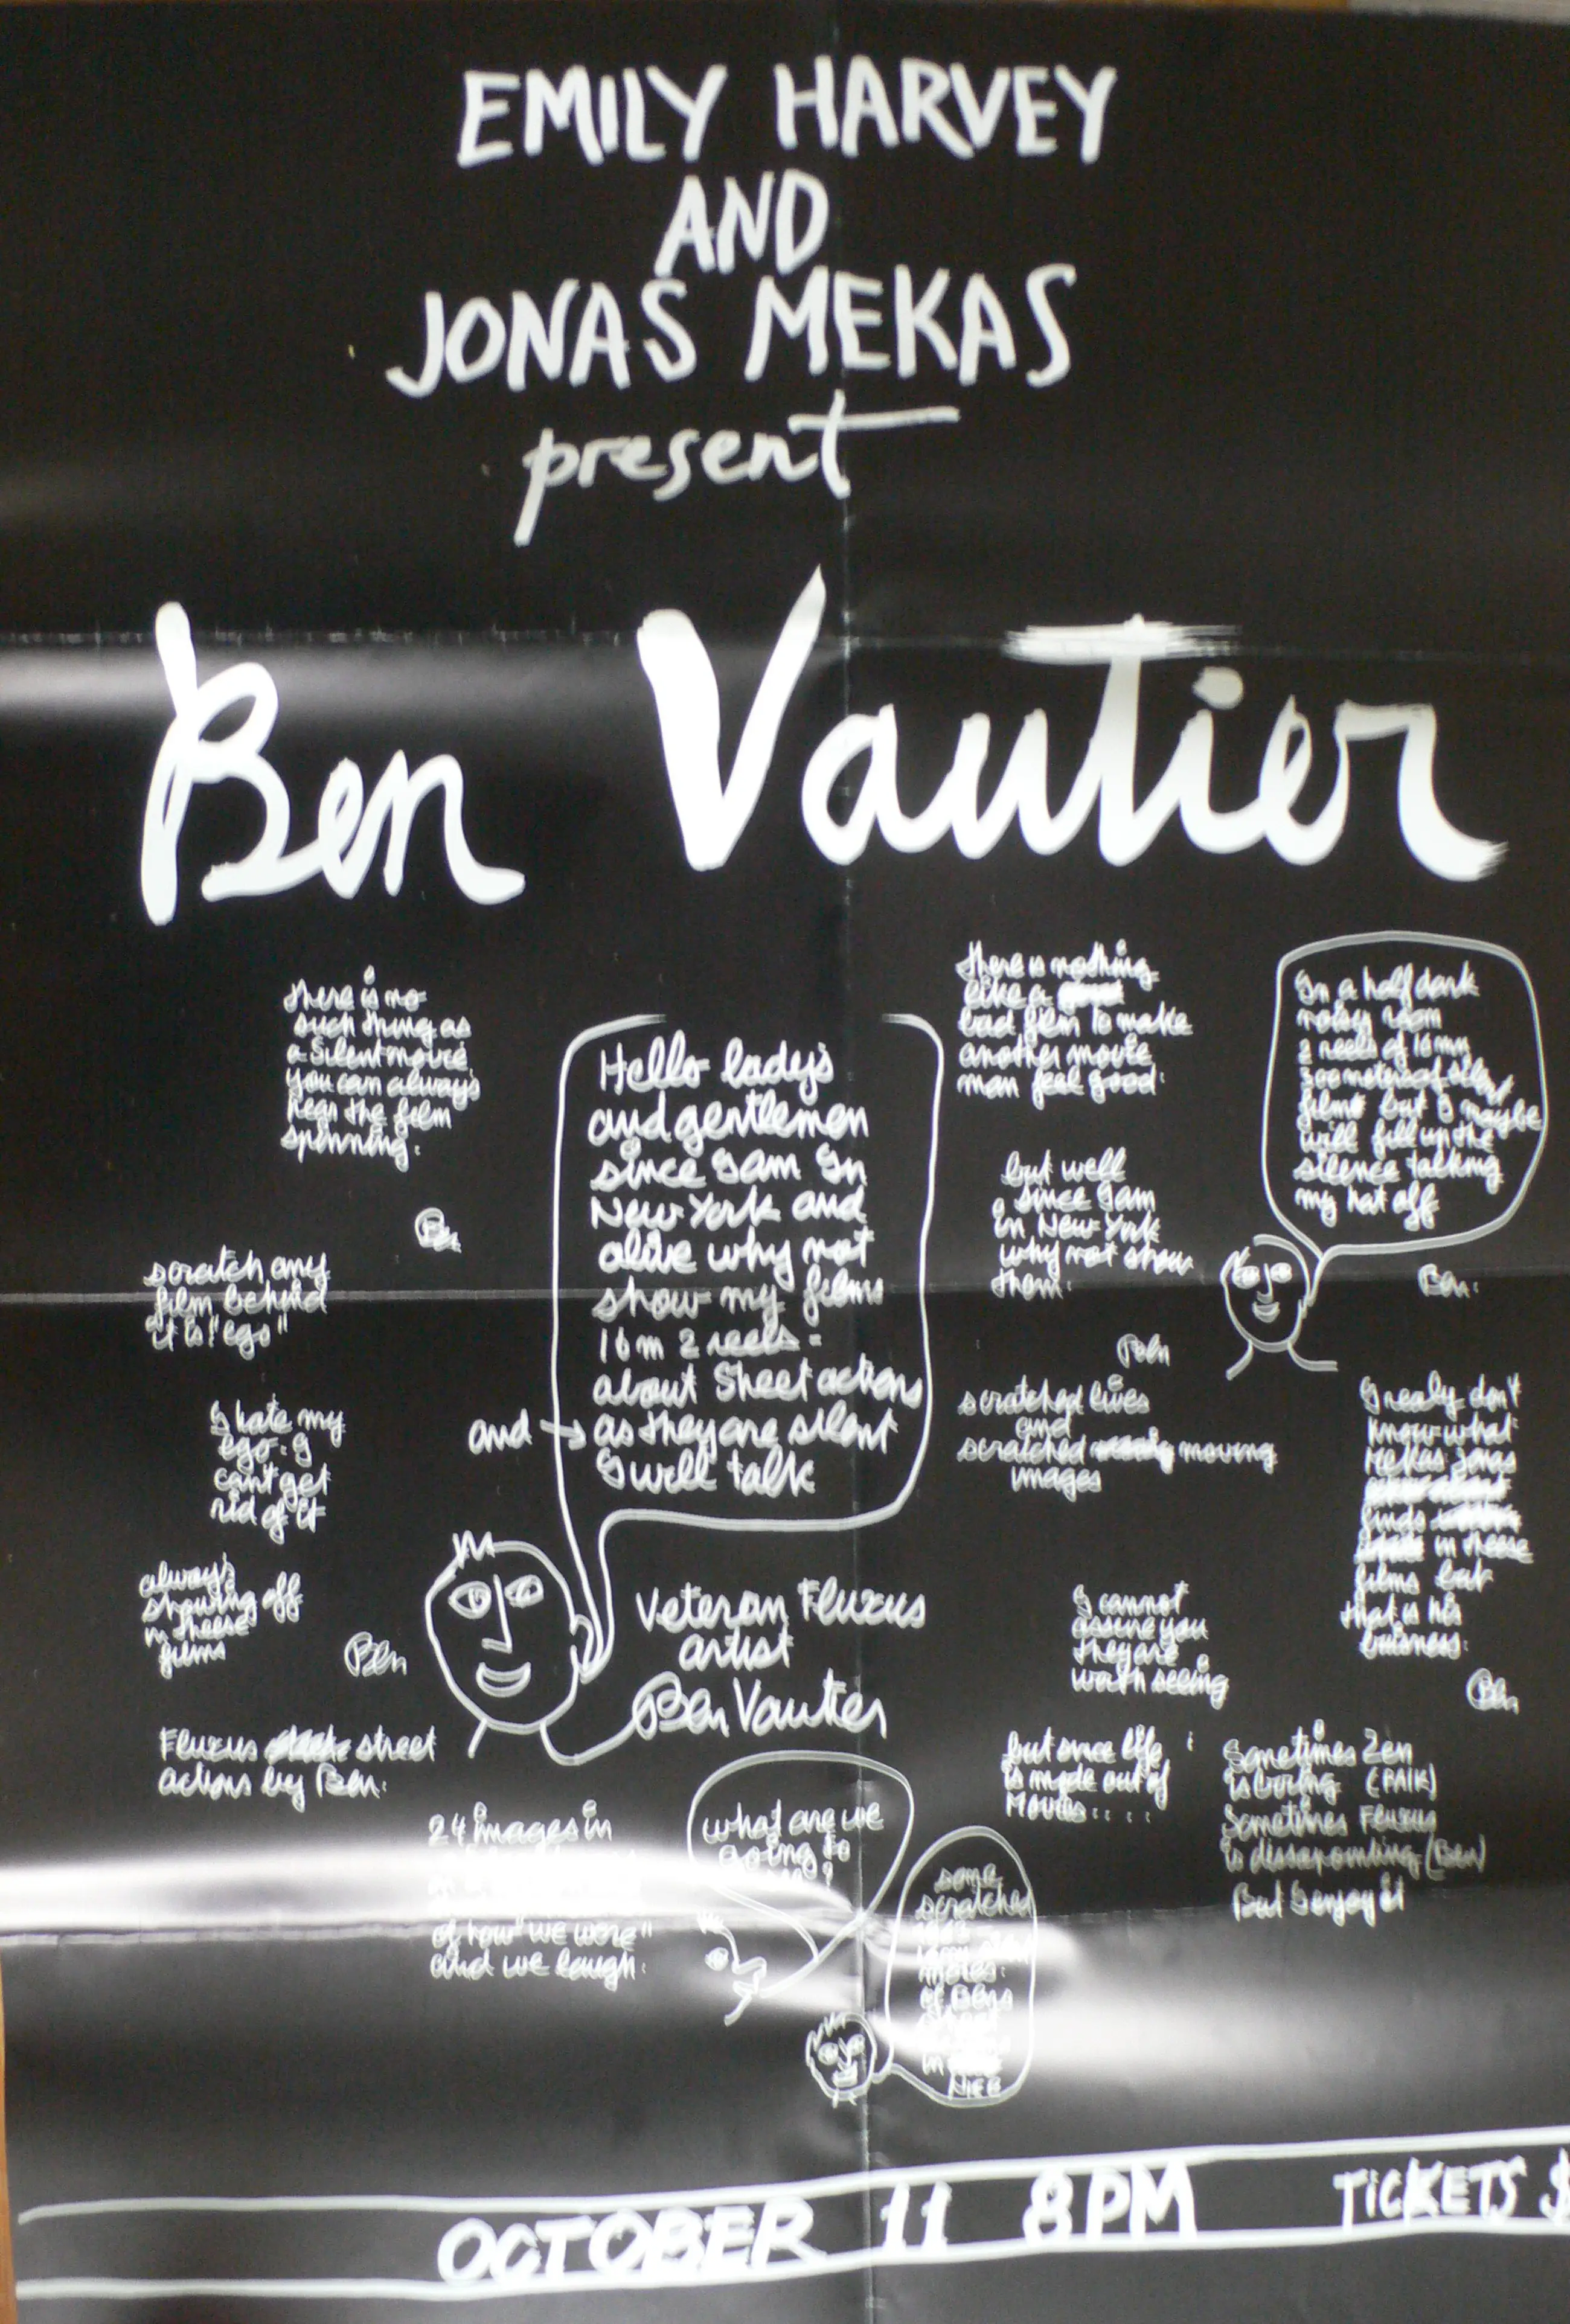 EMILY HARVEY
AND
JONAS MEKAS
present
Ben Vautier
there is no
such thing as
a silent movie
you can always
hear the film
spinning.
Ben
scratch any
film behind
it is "ego"
I hate my
ego. I
can't get
rid of it
always
showing off
in theese
films
Ben
Fluxus street
actions by Ben.
Hello lady's
and gentlemen
since I am In
New York and
alive why not
show my films
16 m 2 reels =
about Street actions
and → as they are silent
I will talk
Veteran Fluxus
artist
Ben Vautier
24 images in
of how "we were"
and we laugh.
what are we
going to
some
scratched
of Bens
in
NICE
there is nothing
like a
bad film to make
another movie
man feel good.
but well
since I am
in New York
why not show
them.
Ben
scratched lives
and
scratched moving
images
I cannot
assure you
they are
worth seeing
but since life
is made out of
Movies....
In a half dark
noisy room
2 reels of 16 mm
300 meters of silent
films but I maybe
will fill up the
silence talking
my hat off
Ben.
I realy don't
know what
Mekas Jonas
finds
in theese
films but
that is his
buisness.
Ben
Sometimes Zen
is boring (PAIK)
Sometimes Fluxus
is dissapointing (Ben)
But I enjoy it
OCTOBER 11 8 PM TICKETS $